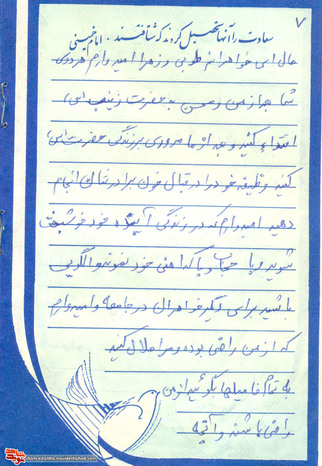 ۷
سعادت را آنها تحصیل کردند که شتافتند. امام خمینی
حال ای خواهرانم طوبی و زهرا امیدوارم هر دوی
شما بعد از من و حسن به حضرت زینب (س)
اقتداء کنید و بعد از ما مروری بر زندگی حضرت (س)
کنید وظیفه خود را در قبال خون برادرتان انجام
دهید امیدوارم که در زندگی آینده خود خوشبخت
شوید و با حجاب و پاکدامنی خود نمونه و الگویی
باشید برای دیگر خواهران در جامعه و امیدوارم
که از من راضی بوده و مرا حلال کنید
به تمام فامیلها بگوئید از من
راضی باشند و